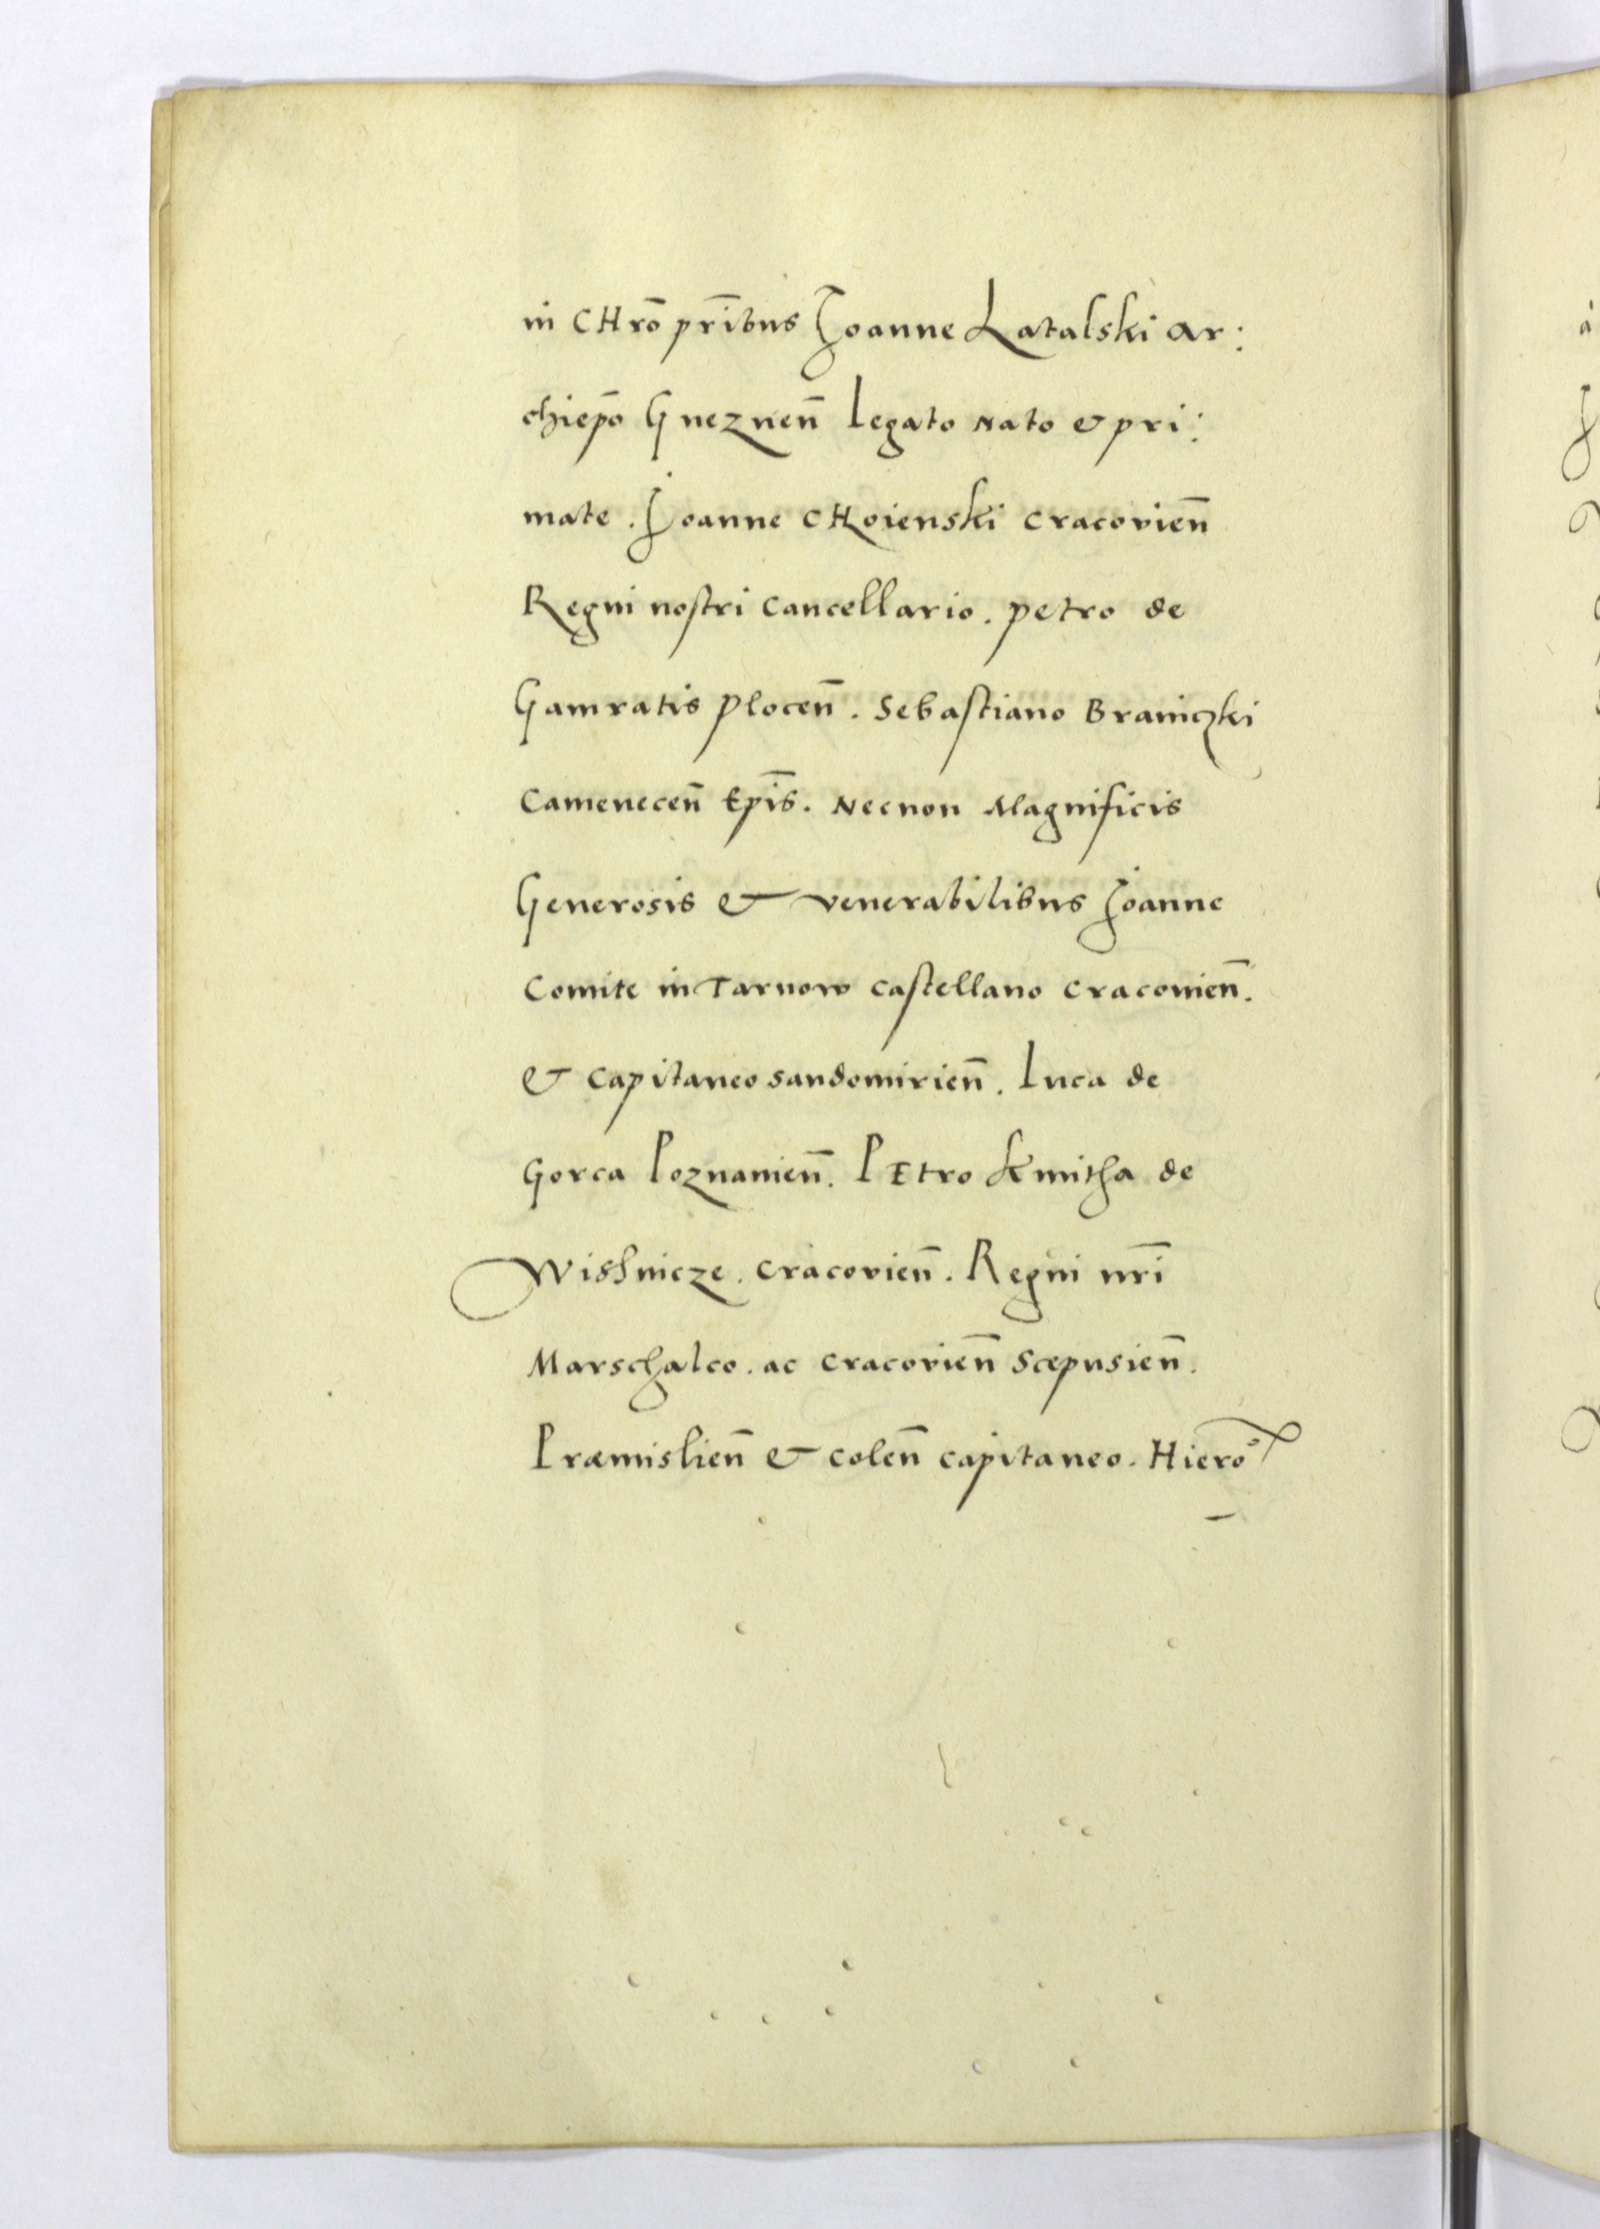 in CHrō pr̄ibus Joanne Latalski Ar:
chiep̄o Gneznen̄ legato Nato & pri:
mate. Joanne CHoienski Cracovien̄
Regni nostri Cancellario. petro de
Gamratis Plocen̄. Sebastiano Braniczki
Camenecen̄ Ep̄is. Necnon Magnificis
Generosis & venerabilibus Joanne
Comite in Tarnow Castellano Cracouien̄.
& Capitaneo Sandomirien̄. Luca de
Gorca Poznanien̄. PEtro Kmitha de
Wishnicze. Cracovien̄. Regni nr̄i
Marschalco. ac Cracovien̄ Scepusien̄.
Præmislien̄ & Colen̄ Capitaneo. Hiero